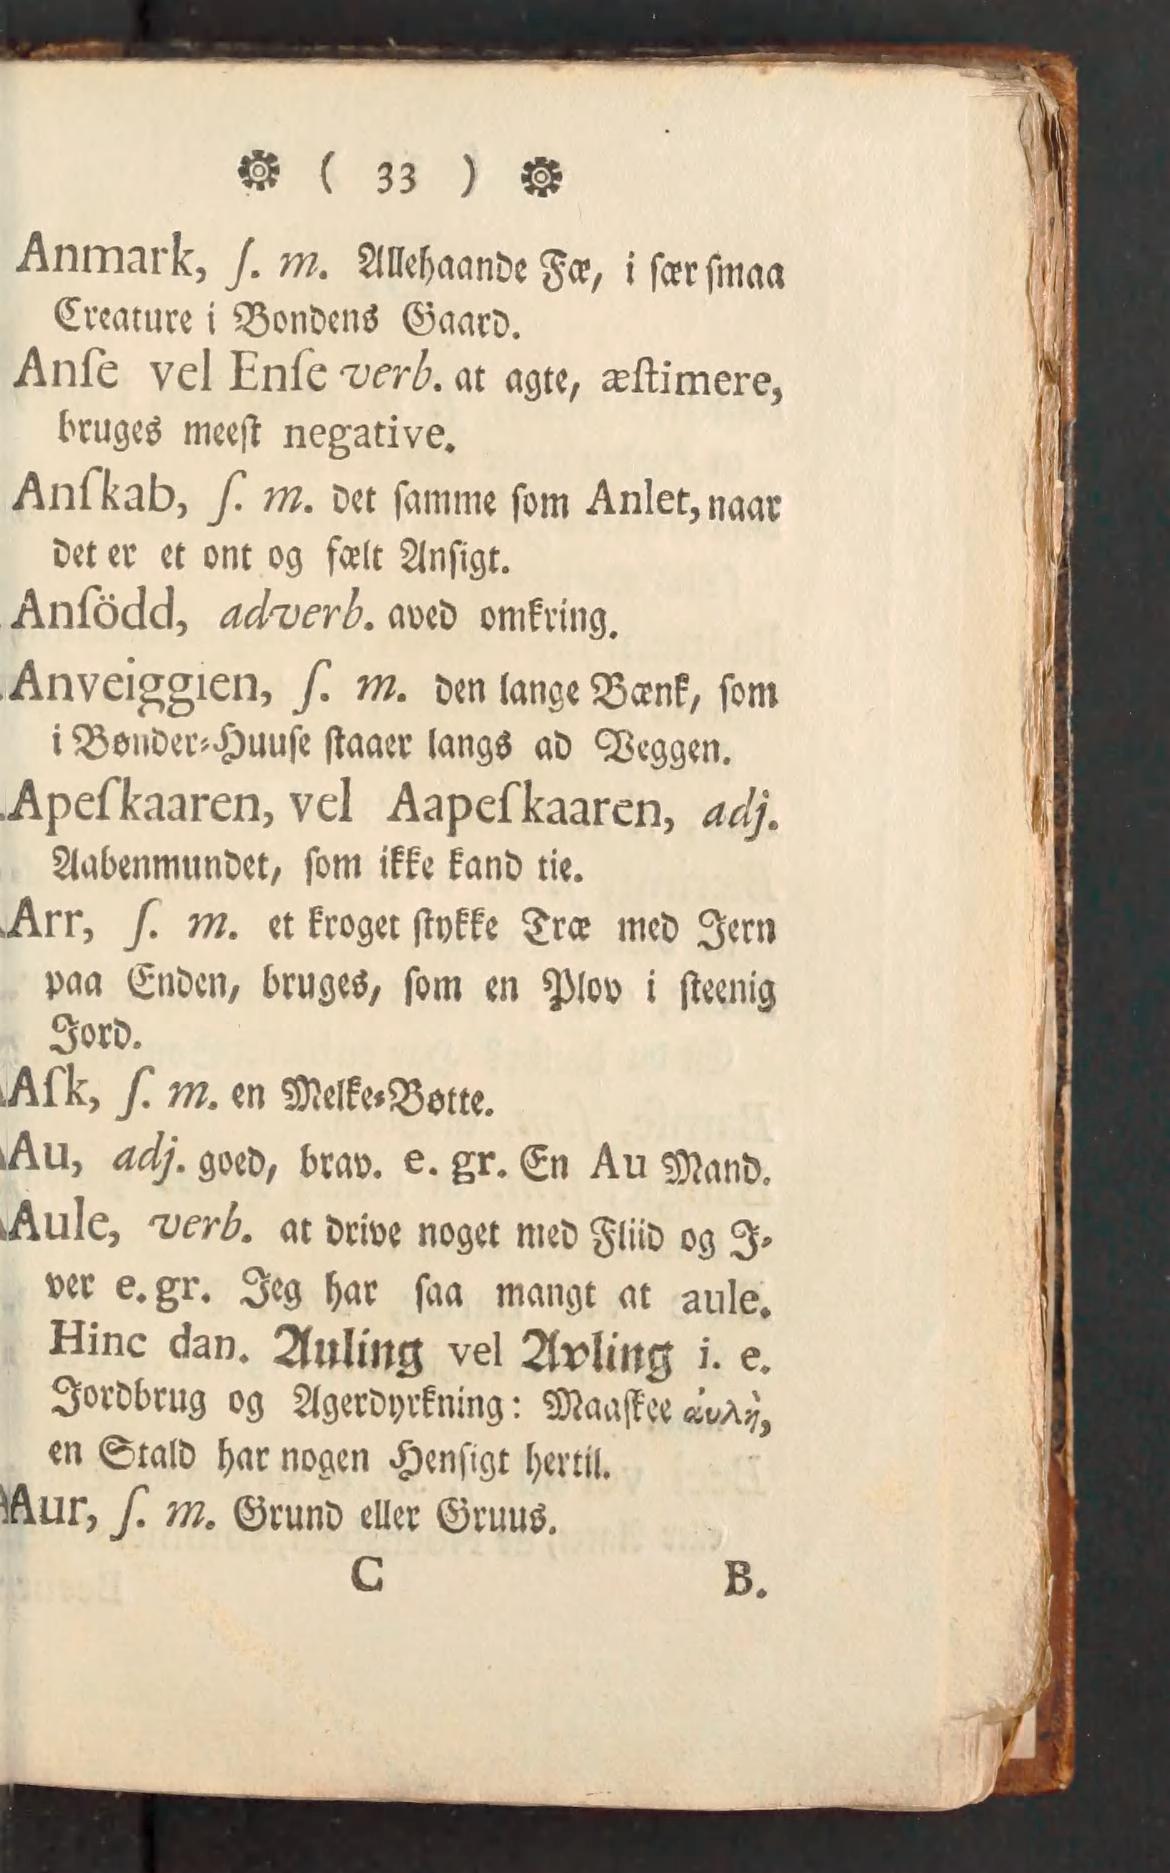 ( 33 )
Anmark, ſ. m. Allehaande Fæ, i ſær ſmaa
Creature i Bondens Gaard.
Anſe vel Enſe verb. at agte, æſtimere,
bruges meeſt negative.
Anſkab, ſ. m. det ſamme ſom Anlet, naar
det er et ont og fælt Anſigt.
Anſödd, adverb. aved omkring.
Anveiggien, ſ. m. den lange Bænk, ſom
i Bønder-Huuſe ſtaaer langs ad Veggen.
Apeſkaaren, vel Aapeſkaaren, adj.
Aabenmundet, ſom ikke kand tie.
Arr, ſ. m. et kroget ſtykke Træ med Jern
paa Enden, bruges, ſom en Plov i ſteenig
Jord.
Aſk, ſ. m. en Melke-Bøtte.
Au, adj. goed, brav. e. gr. En Au Mand.
Aule, verb. at drive noget med Fliid og J-
ver e. gr. Jeg har ſaa mangt at aule.
Hinc dan. Auling vel Avling i. e.
Jordbrug og Agerdyrkning: Maaſkee ἀυλὴ,
en Stald har nogen Henſigt hertil.
Aur, ſ. m. Grund eller Gruus.
C B.